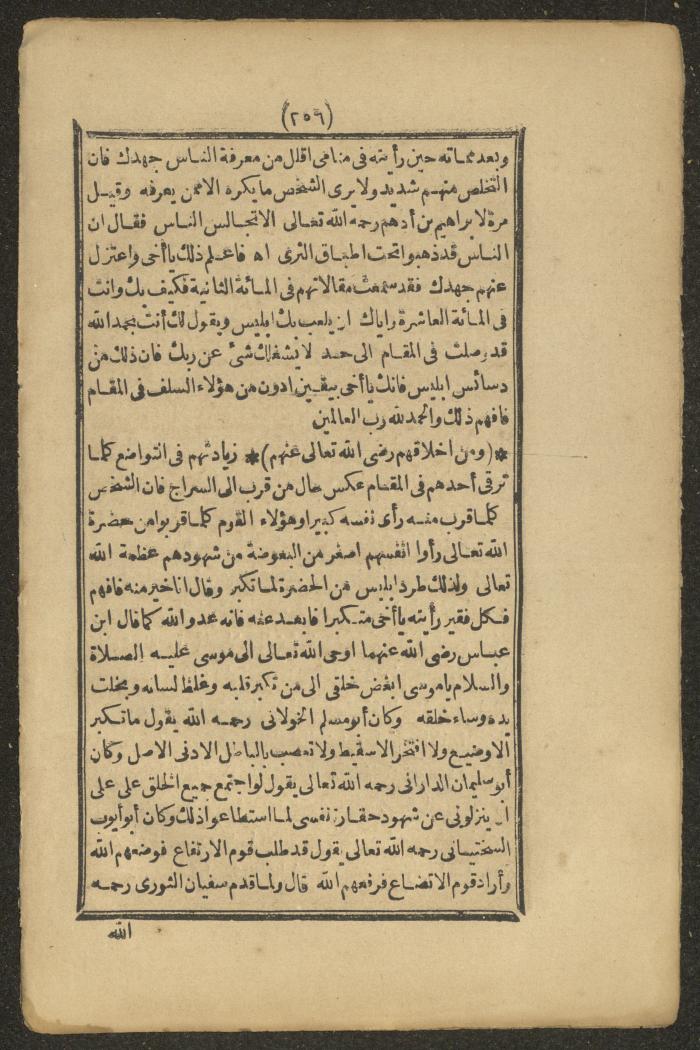 (٢٥٦)
وبعد مماته حين رأيته فى منامى اقلل من معرفة الناس جهدك فان
التخلص منهم شديد ولا يرى الشخص ما يكره الا ممن يعرفه وقيل
مرة لابراهيم بن أدهم رحمه الله تعالى الا تجالس الناس فقال ان
الناس قد ذهبوا تحت اطباق الثرى اه فاعلم ذلك يا أخى واعتزل
عنهم جهدك فقد سمعت مقالاتهم فى المائة الثانية فكيف بك وانت
فى المائة العاشرة واياك ان يلعب بك ابليس ويقول لك أنت بحمد الله
قد وصلت فى المقام الى حد لا يشغلك شئ عن ربك فان ذلك من
دسائس ابليس فانك يا أخى بيقين ادون من هؤلاء السلف فى المقام
فافهم ذلك والحمد لله رب العالمين
*(ومن اخلاقهم رضى الله تعالى عنهم)* زيادتهم فى التواضع كلما
ترقى أحدهم فى المقام عكس حال من قرب الى السراج فان الشخص
كلما قرب منه رأى نفسه كبيرا وهؤلاء القوم كلما قربوا من حضرة
الله تعالى رأوا انفسهم اصغر من البعوضة من شهودهم عظمة الله
تعالى ولذلك طرد ابليس من الحضرة لما تكبر وقال انا خير منه فافهم
فكل فقير رأيته يا أخى متكبرا فابعد عنه فانه عدو الله كما قال ابن
عباس رضى الله عنهما اوحى الله تعالى الى موسى عليه الصلاة
والسلام يا موسى ابغض خلقى الى من تكبر قلبه وغلظ لسانه وبخلت
يده وساء خلقه وكان أبو مسلم الخولانى رحمه الله يقول ما تكبر
الا وضيع ولا افتخر الا سقيط ولا تعصب بالباطل الا دنى الاصل وكان
أبو سليمان الدارانى رحمه الله تعالى يقول لو اجتمع جميع الخلق على على
ان ينزلونى عن شهود حقارة نفسى لما استطاعوا ذلك وكان أبو أيوب
السختيانى رحمه الله تعالى يقول قد طلب قوم الارتفاع فوضعهم الله
وأراد قوم الاتضاع فرفعهم الله قال ولما قدم سفيان الثورى رحمه
الله